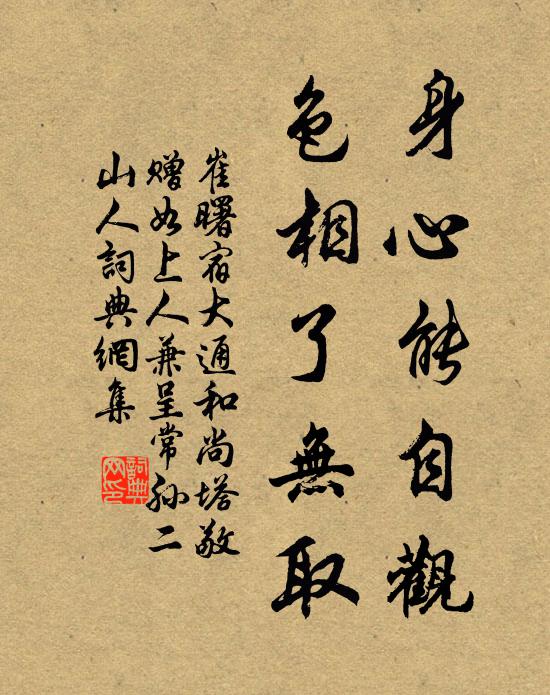 身心能自觀
色相了無取
崔曙宿大通和尚塔敬
贈如上人兼呈常孫二
山人詞典網集
詞典
网印